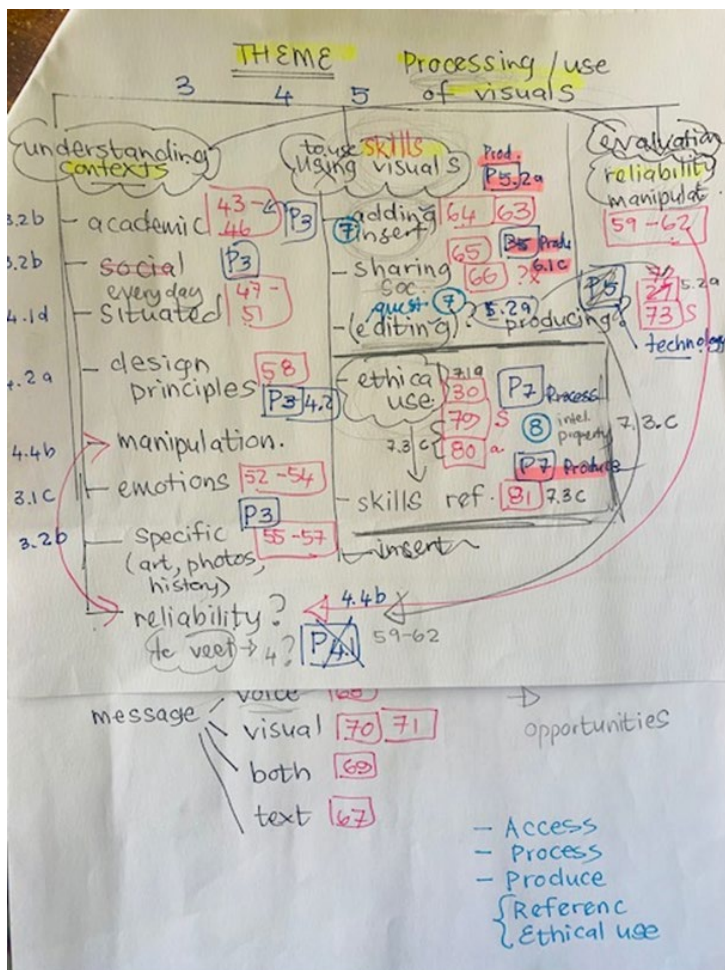 THEME
Processing / use
of visuals
3 4 5
understanding
contexts
3.2b – academic 43 – 46 P3
3.2b – social P3
everyday
4.1d – situated 47 – 51
4.2a – design 58
principles P3 – 4.2
4.4b – manipulation.
3.1c – emotions 52 – 54
P3
3.2b – specific 55 – 57
(art, photos,
history)
reliability?
4.4b
to veet → 4? P4.1 59–62
to use skills
using visuals
Prod.
P5.2a
– adding 64 63
7 insert
– sharing 65 Produ
soc. 66 ?x 6.1c
quest 7
– (editing). 5.2a producing?
– ethica 7.1a
use 30 P7 Process
79 S 8 intel.
property
7.3 c 80 a
P7 Produce
– skills ref. 81 7.3c
– insert
evaluation
reliability
manipulat
59 – 62
P5 5.2a
73 S
technology
7.3.c
message
voice 68
visual 70 71
both 69
text 67
opportunities
– Access
– Process
– Produce
Referenc
Ethical use